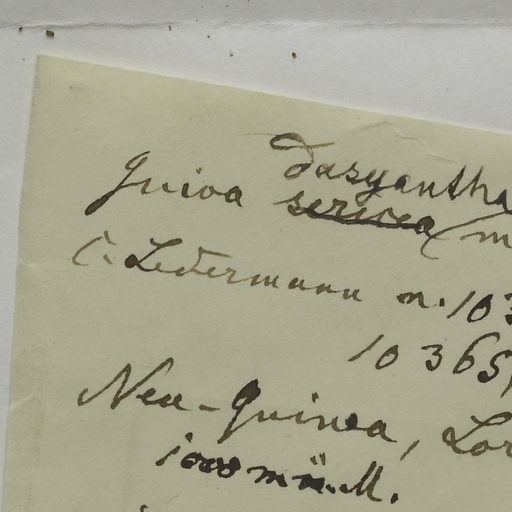 dasyantha
Guioa sericea (m
C. Ledermann n. 103
10365,
Neu-Guinea, Lor
1000 m ü. M.